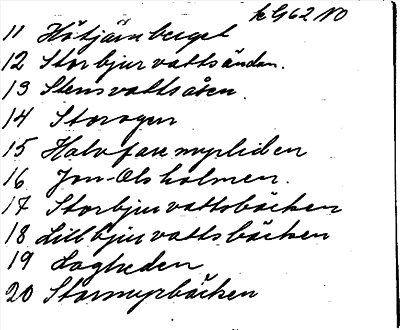 kG62 NO
11 Håtjärnberget
12 Storbjurvattsändan.
13 Stensvattsåsen.
14 Storogen
15 Halvfaremyrliden
16 Jon-Olsholmen.
17 Storbjurvattsbäcken
18 Lillbjurvattsbäcken
19 Hogheden
20 Stormyrbäcken